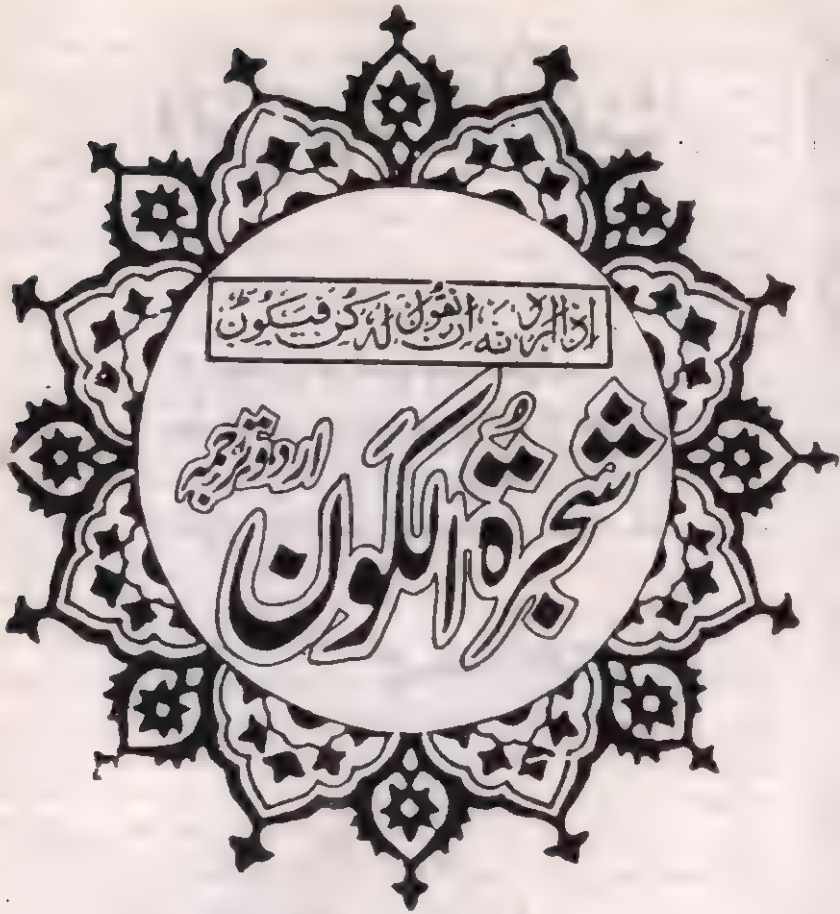 اذا اردنه ان نقول له كن فيكون
شجرۃُ الکون
اردو ترجمہ